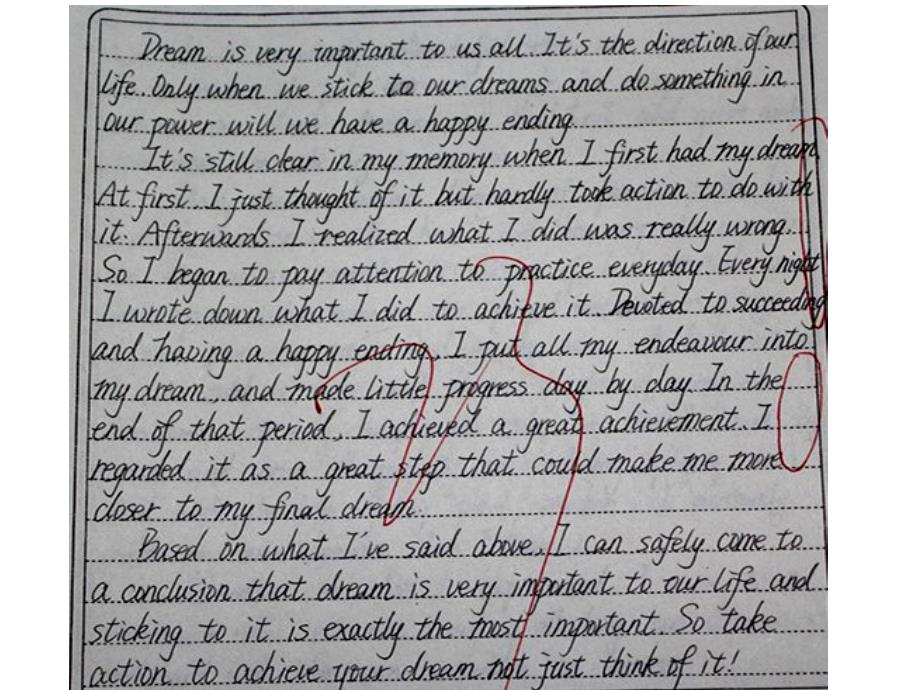 Dream is very important to us all. It's the direction of our
life. Only when we stick to our dreams and do something in
our power will we have a happy ending.
It's still clear in my memory when I first had my dream.
At first. I just thought of it but hardly took action to do with
it. Afterwards I realized what I did was really wrong.
So I began to pay attention to practice everyday. Every night
I wrote down what I did to achieve it. Devoted to succeeding
and having a happy ending, I put all my endeavour into
my dream, and made little progress day by day. In the
end of that period, I achieved a great achievement. I
regarded it as a great step that could make me more
closer to my final dream.
Based on what I've said above, I can safely come to
a conclusion that dream is very important to our life and
sticking to it is exactly the most important. So take
action to achieve your dream not just think of it!